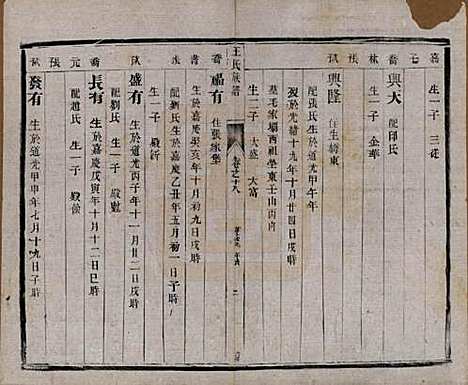 嘉 七 喬 林 張 斌
生一子 三硅
興大 配邱氏
生一子 金華
興隆 住生轉東
配張氏生於道光甲午年
歿於光緒十九年十月廿四日戌時
墓毛家壩西祖塋東壬山丙向
生二子 大盛 大富
王氏族譜
卷之八
二
喬 書 斌 張 元 喬 斌
福有 住張家堡
生於嘉慶癸亥年十月初九日戌時
配劉氏生於嘉慶乙丑年五月初一日子時
生一子 殿衍
盛有 生於道光丙子年十一月廿二日戌時
配劉氏 生一子 殿魁
長有 生於嘉慶戊寅年十月十二日巳時
配趙氏 生一子 殿儉
發有 生於道光甲申年七月十九日子時